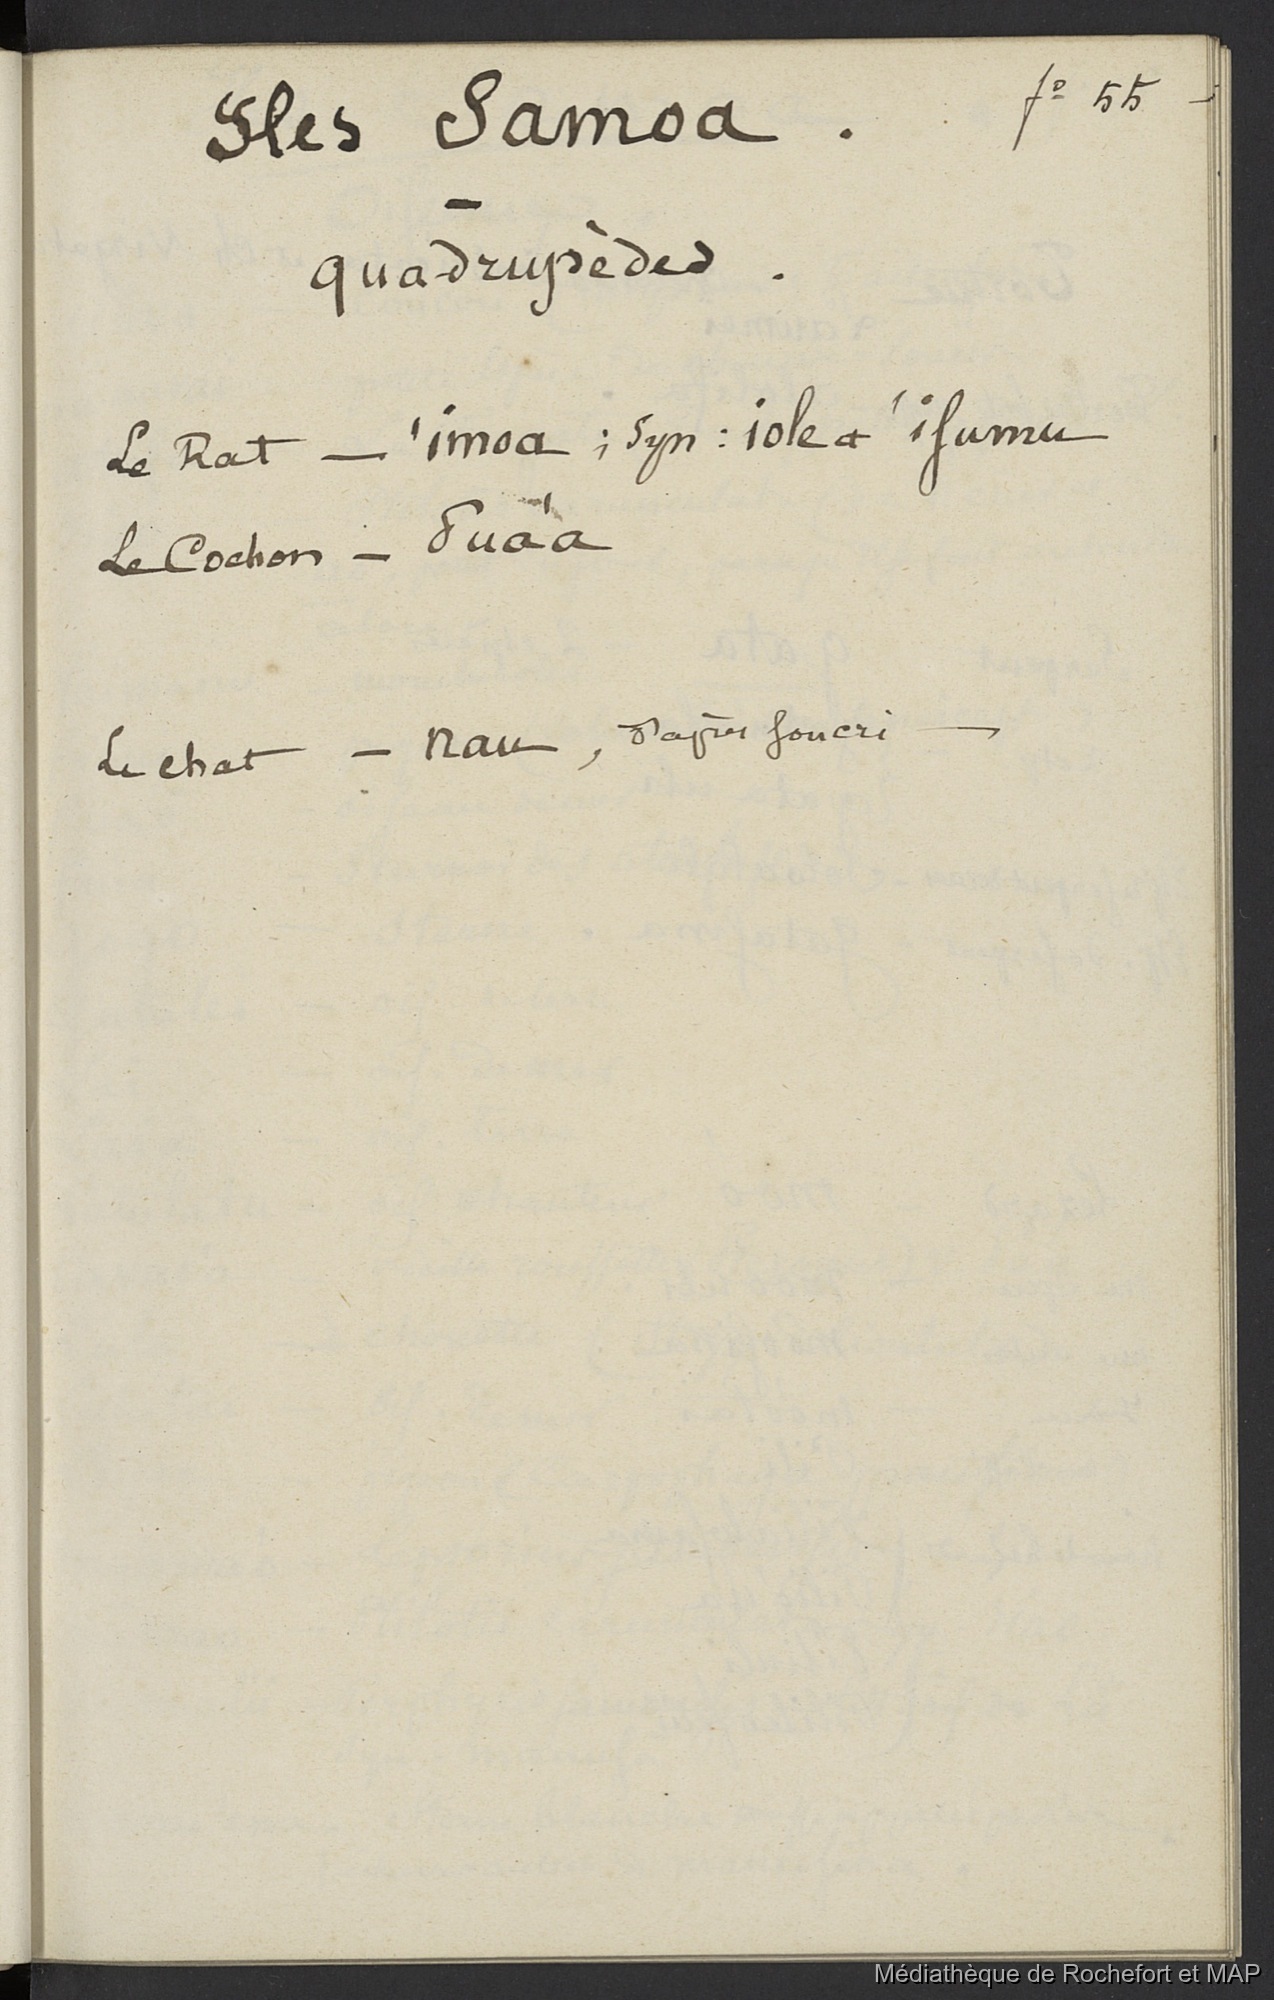 f° 55
Iles Samoa .
quadrupèdes .
Le Rat — 'imoa ; Syn : iole et 'isumu
Le Cochon — Puà'a
Le chat — nau , d'après Soucri —
Médiathèque de Rochefort et MAP